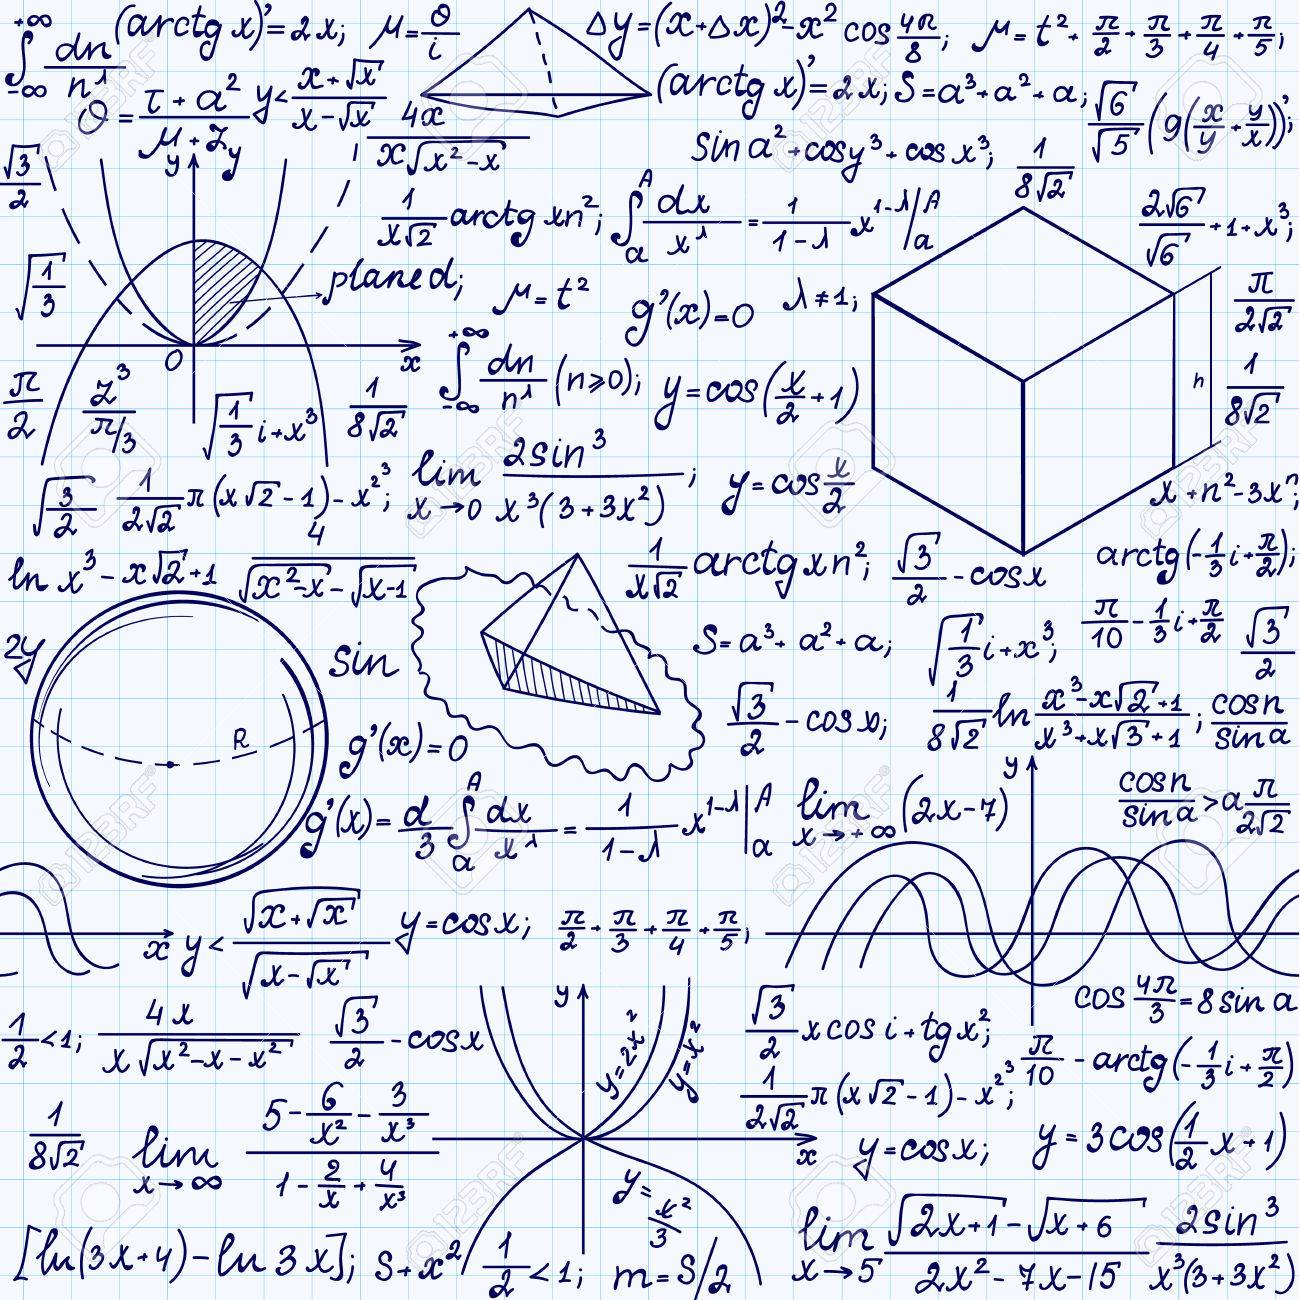 +∞ ∫ -∞ dn/n^λ (arctg x)' = 2x; μ = θ/i Δy = (x+Δx)² - x² cos 4π/8; μ = t² + π/2 + π/3 + π/4 + π/5;
θ = (τ + a²)/(μ + z) y < (x+√x)/(x-√x) (arctg x)' = 2x; S = a³ + a² + a; √6/√5 (g(x/y + y/x))';
4x/(x√(x²-x)) sin a² + cos y³ + cos x³; 1/(8√2)
√3/2 y 1/(x√2) arctg xn²; ∫ A a dx/x^λ = 1/(1-λ) x^(1-λ) | A a 2√6/√6 + 1 + x³;
√(1/3) plane d; μ = t² g'(x) = 0 λ ≠ 1; π/(2√2)
0 x +∞ ∫ -∞ dn/n^λ (n ≥ 0); y = cos(x/2 + 1) h 1/(8√2)
π/2 z³/(π/3) √(1/3) i + x³ 1/(8√2)
√(3/2) 1/(2√2) π(x√2 - 1) - x²³; lim x→0 2sin³/(x³(3+3x²)); y = cos x/2 x + n² - 3xⁿ;
ln x³ - x√2 + 1 4/(√(x²-x) - √(x-1)) 1/(x√2) arctg xn²; √3/2 - cos x arctg(-1/3 i + π/2);
2y √ sin S = a³ + a² + a; √(1/3) i + x³; π/10 - 1/3 i + π/2 √3/2
R g'(x) = 0 √3/2 - cos x; 1/(8√2) ln (x³-x√2+1)/(x³+x√3+1); cos n/sin a
g'(x) = d/3 ∫ A a dx/x^λ = 1/(1-λ) x^(1-λ) | A a lim x→+∞ (2x-7) y cos n/sin a > a π/(2√2)
x y < √(x+√x)/√(x-√x) y = cos x; π/2 + π/3 + π/4 + π/5;
1/2 < 1; 4x/(x√(x²-x-x²)) √3/2 - cos x y y = 2x² y = x² √3/2 x cos i + tg x²; cos 4π/3 = 8 sin a
1/(2√2) π(x√2 - 1) - x²³; π/10 - arctg(-1/3 i + π/2)
1/(8√2) lim x→∞ (5 - 6/x² - 3/x³)/(1 - 2/x + 4/x³) x y = cos x; y = 3cos(1/2 x + 1)
[ln(3x+4) - ln 3x]; S + x² 1/2 < 1; y = x²/3 m = S/2 lim x→5 (√(2x+1) - √(x+6))/(2x² - 7x - 15) 2sin³/(x³(3+3x²))
123RF